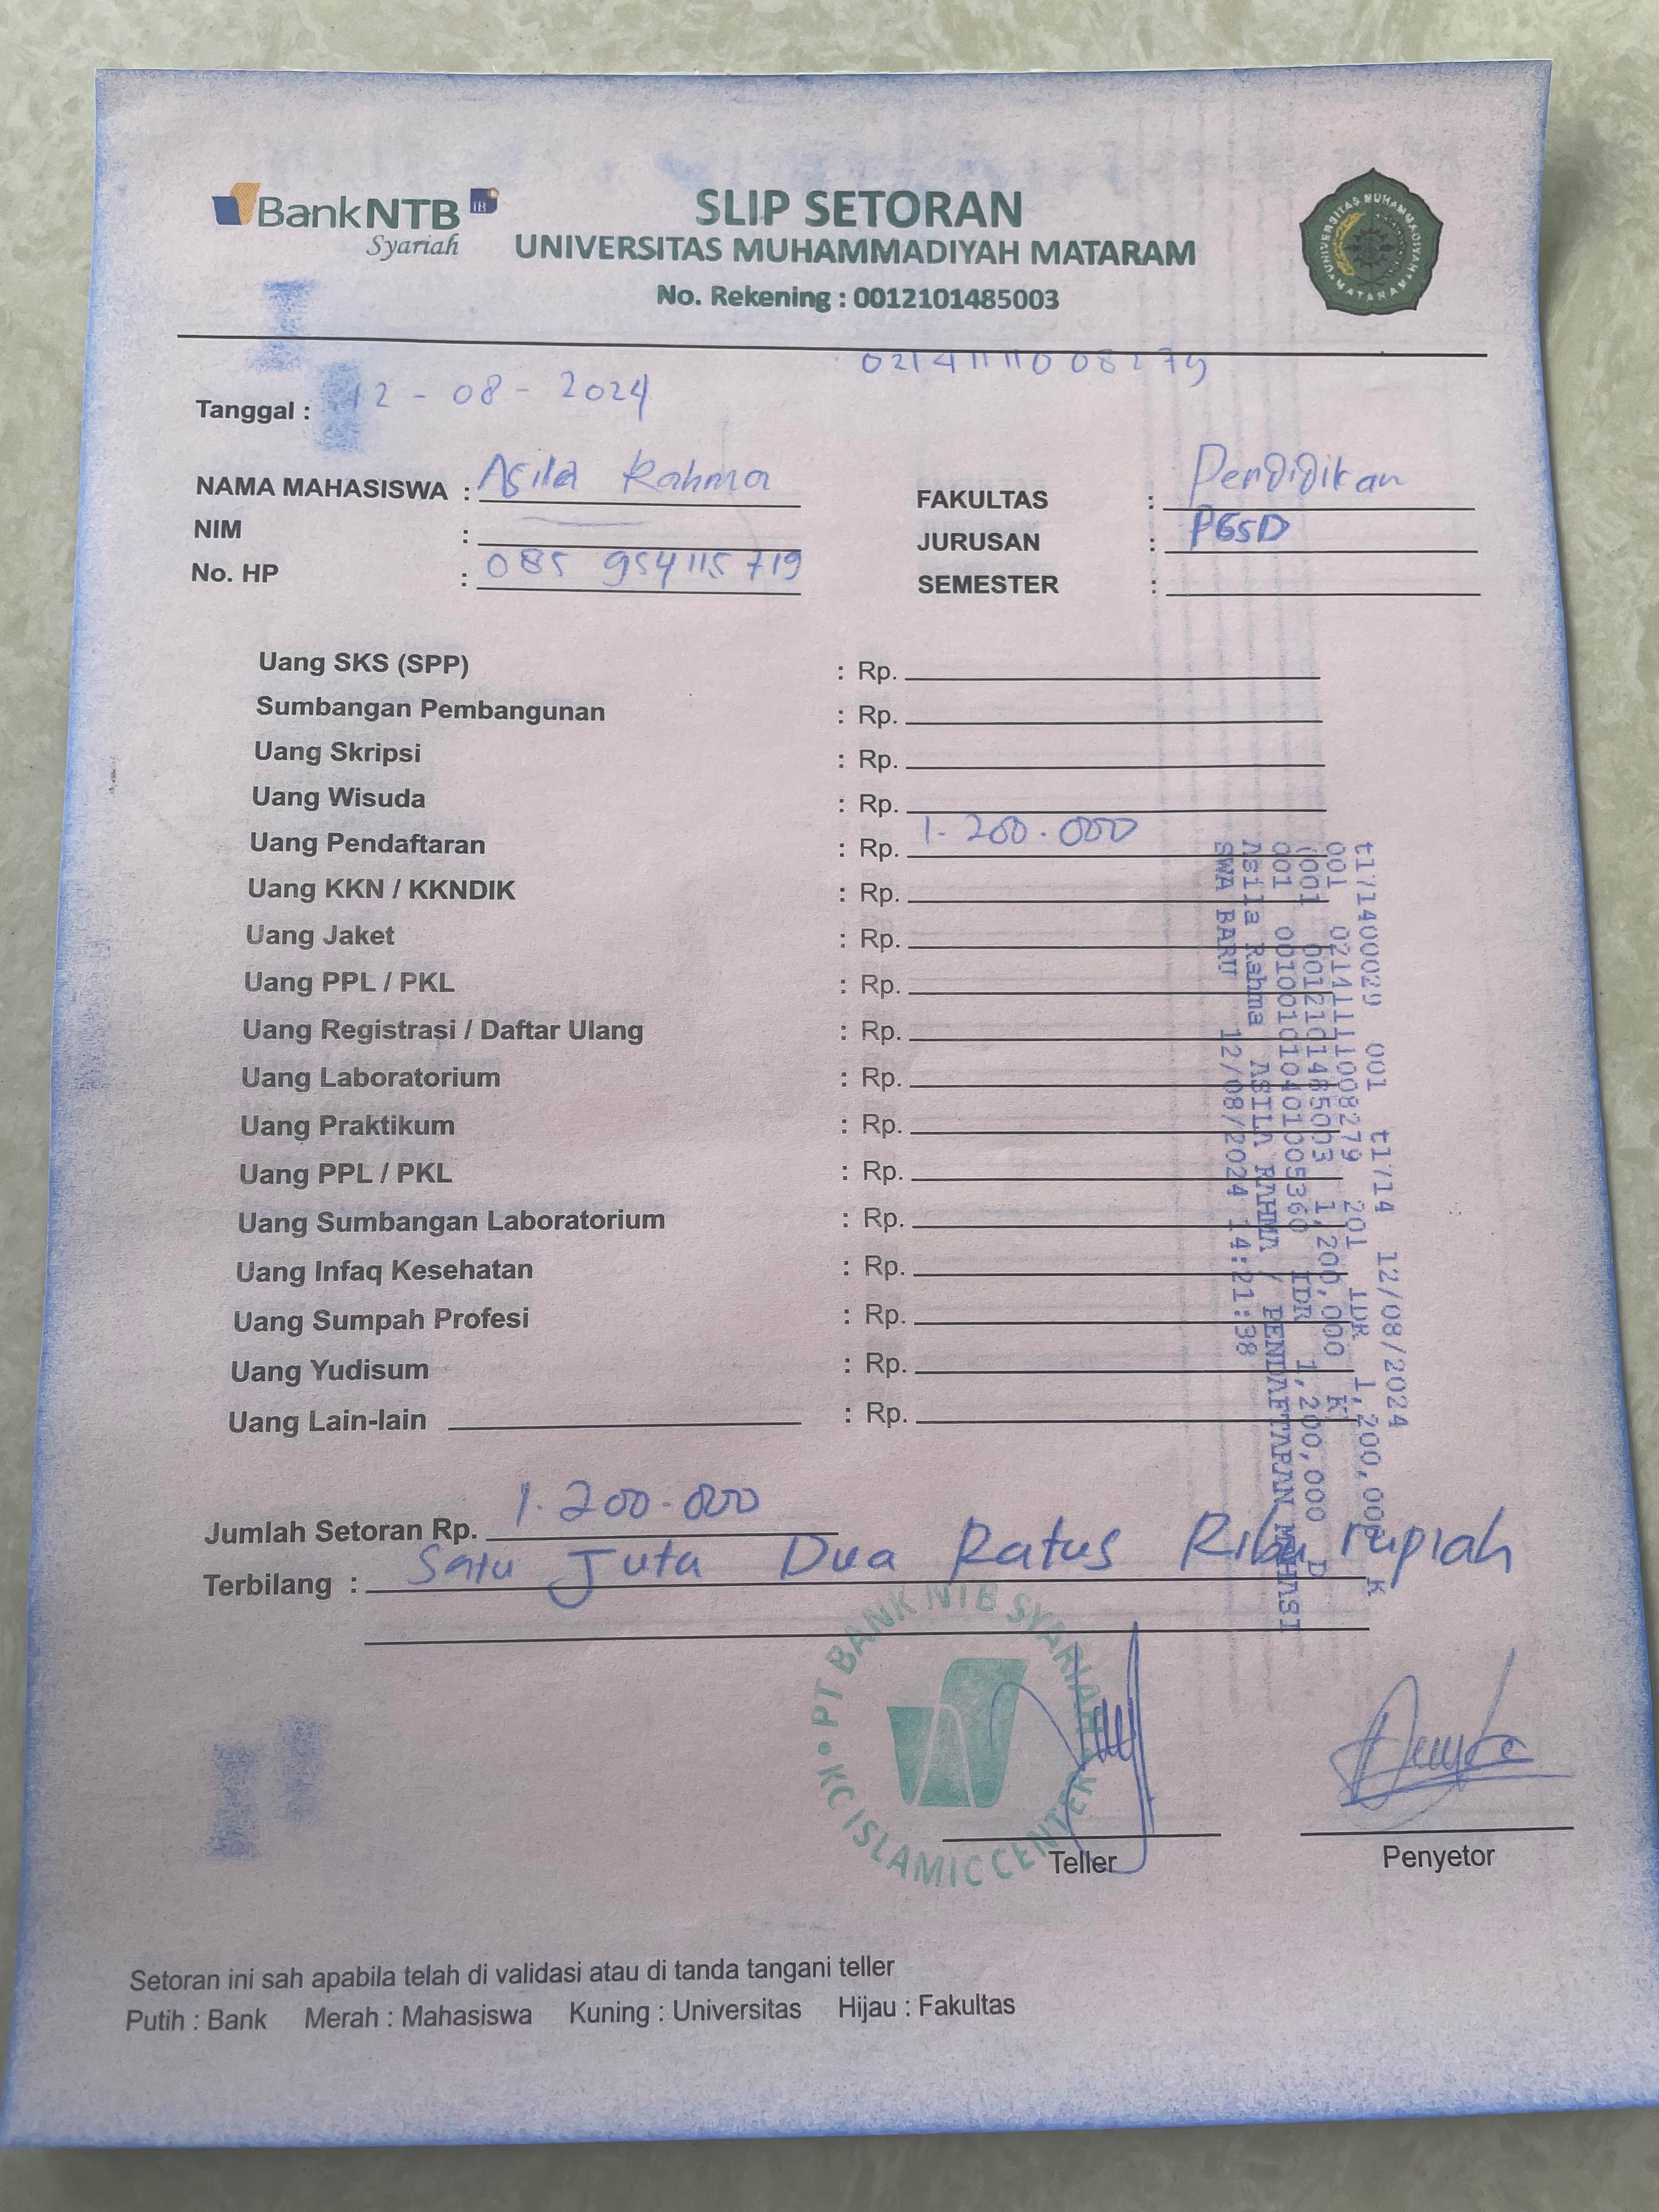 BankNTB iB
Syariah
SLIP SETORAN
UNIVERSITAS MUHAMMADIYAH MATARAM
No. Rekening : 0012101485003
UNIVERSITAS MUHAMMADIYAH
MATARAM
021411111008279
Tanggal : 12 - 08 - 2024
NAMA MAHASISWA : Asila Rahma
NIM :
No. HP : 085 954115719
FAKULTAS : Pendidikan
JURUSAN : PGSD
SEMESTER :
Uang SKS (SPP) : Rp.
Sumbangan Pembangunan : Rp.
Uang Skripsi : Rp.
Uang Wisuda : Rp.
Uang Pendaftaran : Rp. 1.200.000
Uang KKN / KKNDIK : Rp.
Uang Jaket : Rp.
Uang PPL / PKL : Rp.
Uang Registrasi / Daftar Ulang : Rp.
Uang Laboratorium : Rp.
Uang Praktikum : Rp.
Uang PPL / PKL : Rp.
Uang Sumbangan Laboratorium : Rp.
Uang Infaq Kesehatan : Rp.
Uang Sumpah Profesi : Rp.
Uang Yudisum : Rp.
Uang Lain-lain : Rp.
t171400029 001 t1714 12/08/2024
001 021411111008279 201 IDR 1,200,000 K
(001 0012101485003 1,200,000 K
001 001001010401005360 IDR 1,200,000 D
Asila Rahma ASILA RAHMA / PENDAFTARAN MAHASI
SWA BARU 12/08/2024 14:21:38
Jumlah Setoran Rp. 1.200.000
Terbilang : Satu Juta Dua Ratus Ribu rupiah
PT BANK NTB SYARIAH
KC ISLAMIC CENTER
Teller
Penyetor
Setoran ini sah apabila telah di validasi atau di tanda tangani teller
Putih : Bank Merah : Mahasiswa Kuning : Universitas Hijau : Fakultas